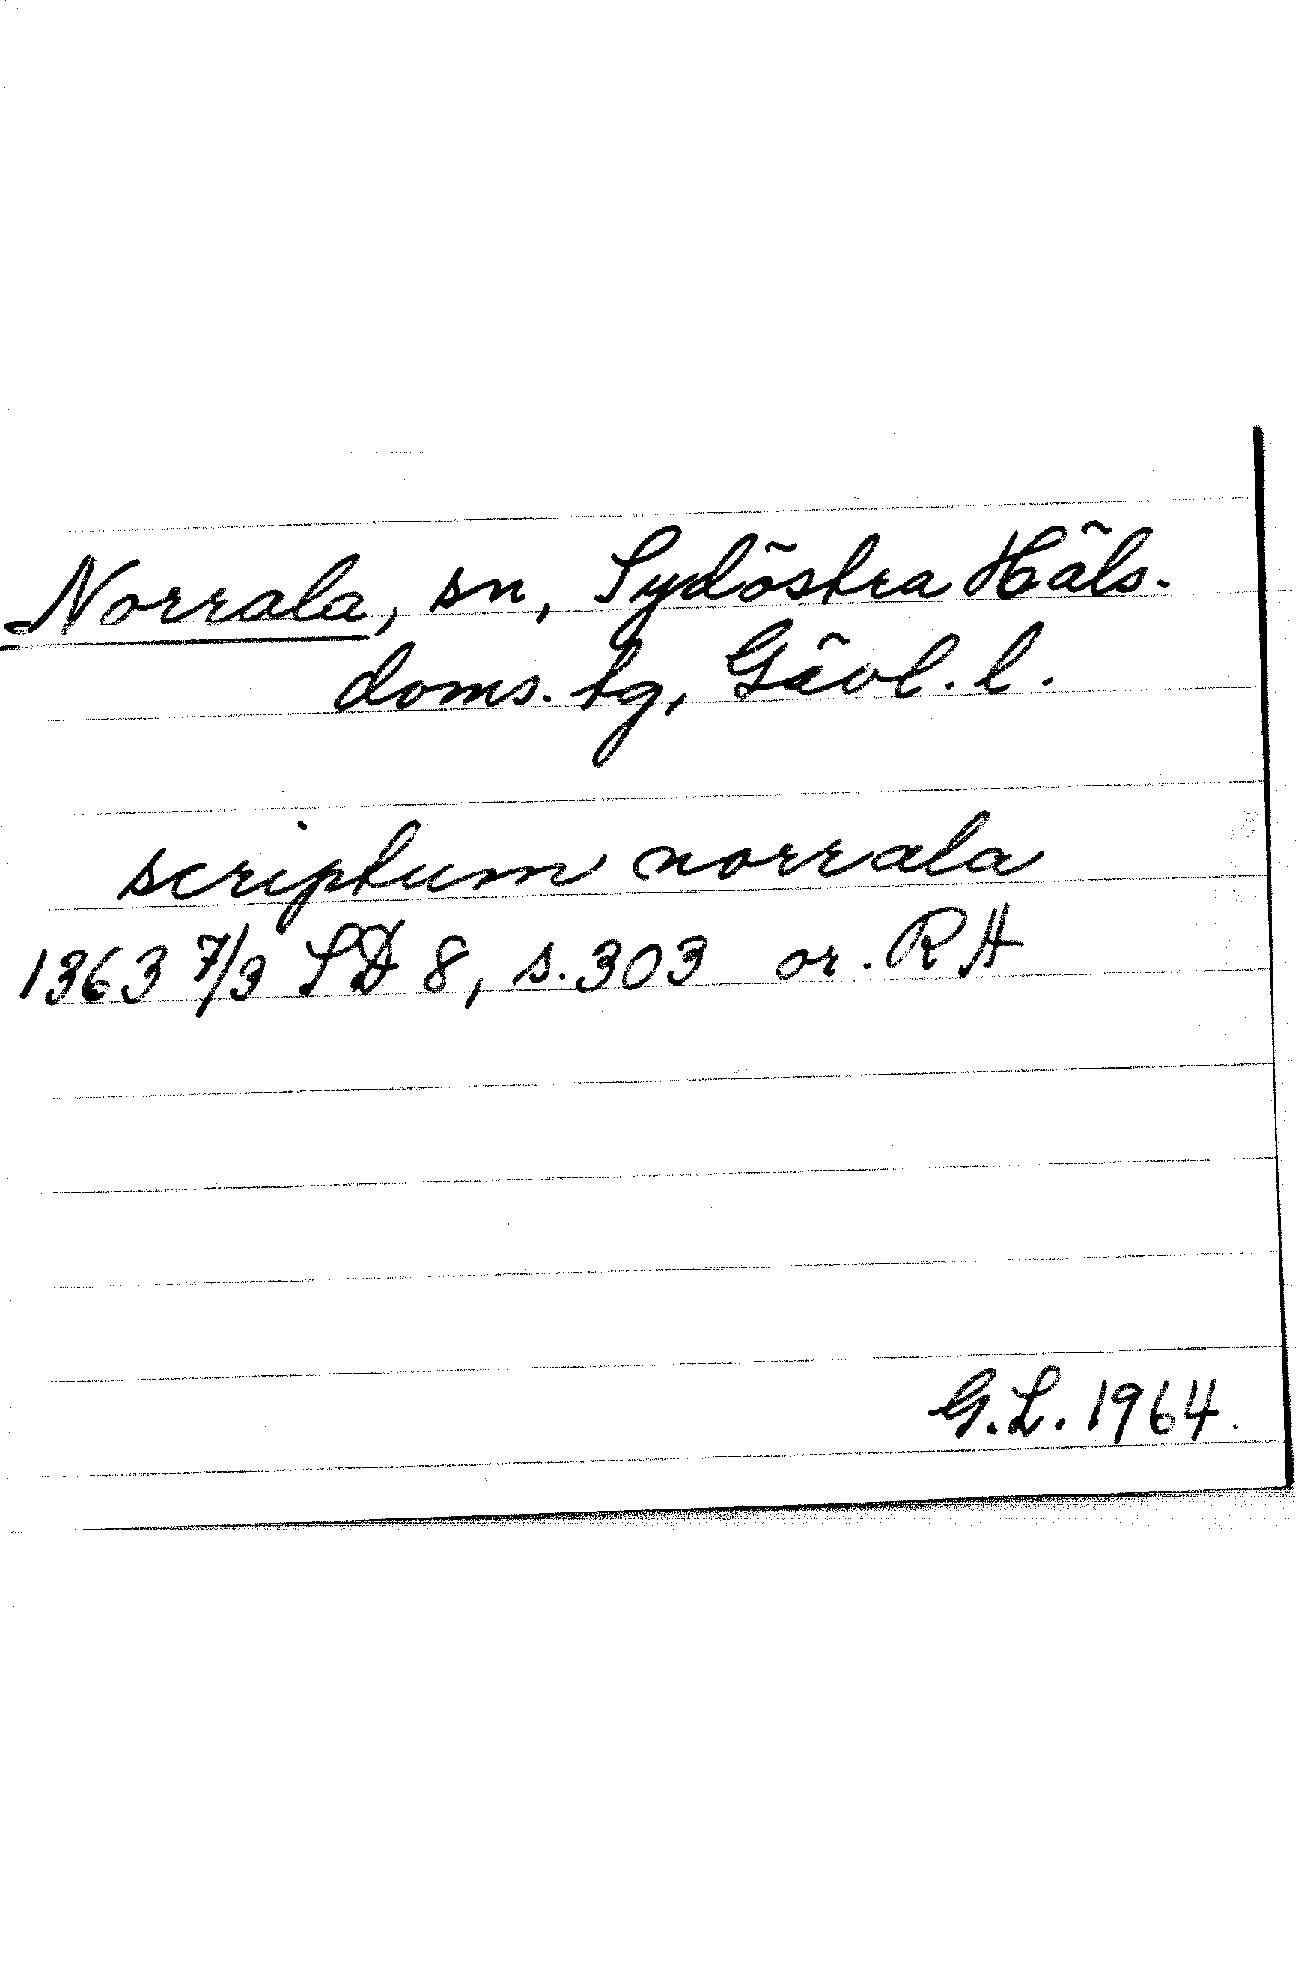 Norrala, sn, Sydöstra Häls.
doms. tg, Gävl. l.
scriptum norrala
1363 7/3 SD 8, s. 303 or. RA
G.L. 1964.